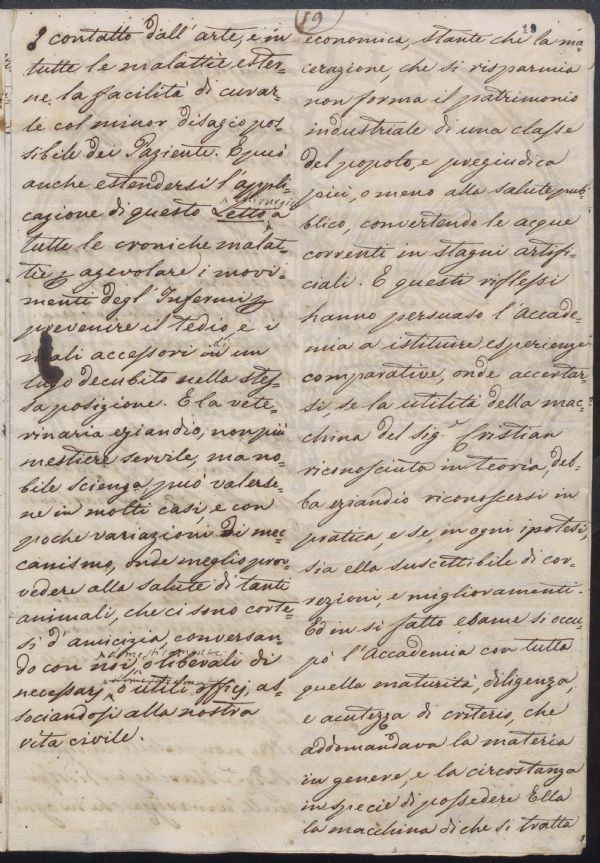 19
19
contatto dall'arte, e in
tutte le malattie ester-
ne la facilità di curar-
le col minor disagio pos-
sibile dei Paziente. E può
anche estendersi l'appli-
cazione di questo Letto a
tutte le croniche malat-
tie p agevolare i movi-
menti degl'Infermi, p
prevenire il tedio, e i
mali accessori di un
lugo decubito nella stes-
sa posizione. E la vete-
rinaria eziandio, non più
mestiere servile, ma no-
bile scienza può valerse-
ne in molti casi, e con
poche variazioni di mec-
canismo, onde meglio prov-
vedere alla salute di tanti
animali, che ci sono corte-
si d'amicizia conversan-
do con noi, o liberali di
necessarj, o utili officj, as-
sociandosi alla nostra
vita civile.
economica, stante che la ma-
cerazione, che si risparmia
non forma il patrimonio
industriale di una classe
del popolo, e pregiudica
più, o meno alla salute pub-
blico, convertendo le acque
correnti in stagni artifi-
ciali. E questi riflessi
hanno persuaso l'Accade-
mia a istituire esperienze
comparative, onde accertar-
si, se la utilità della mac-
china del sig.r Cristian
riconosciuta in teoria, deb-
ba eziandio riconoscersi in
pratica, e se, in ogni ipotesi,
sia ella suscettibile di cor-
rezioni, e miglioramenti.
Ed in sì fatto esame si occu-
pò l'Accademia con tutta
quella maturità, diligenza,
e acutezza di criterio, che
addomandava la materia
in genere, e la circostanza
in specie di possedere Ella
la macchina di che si tratta